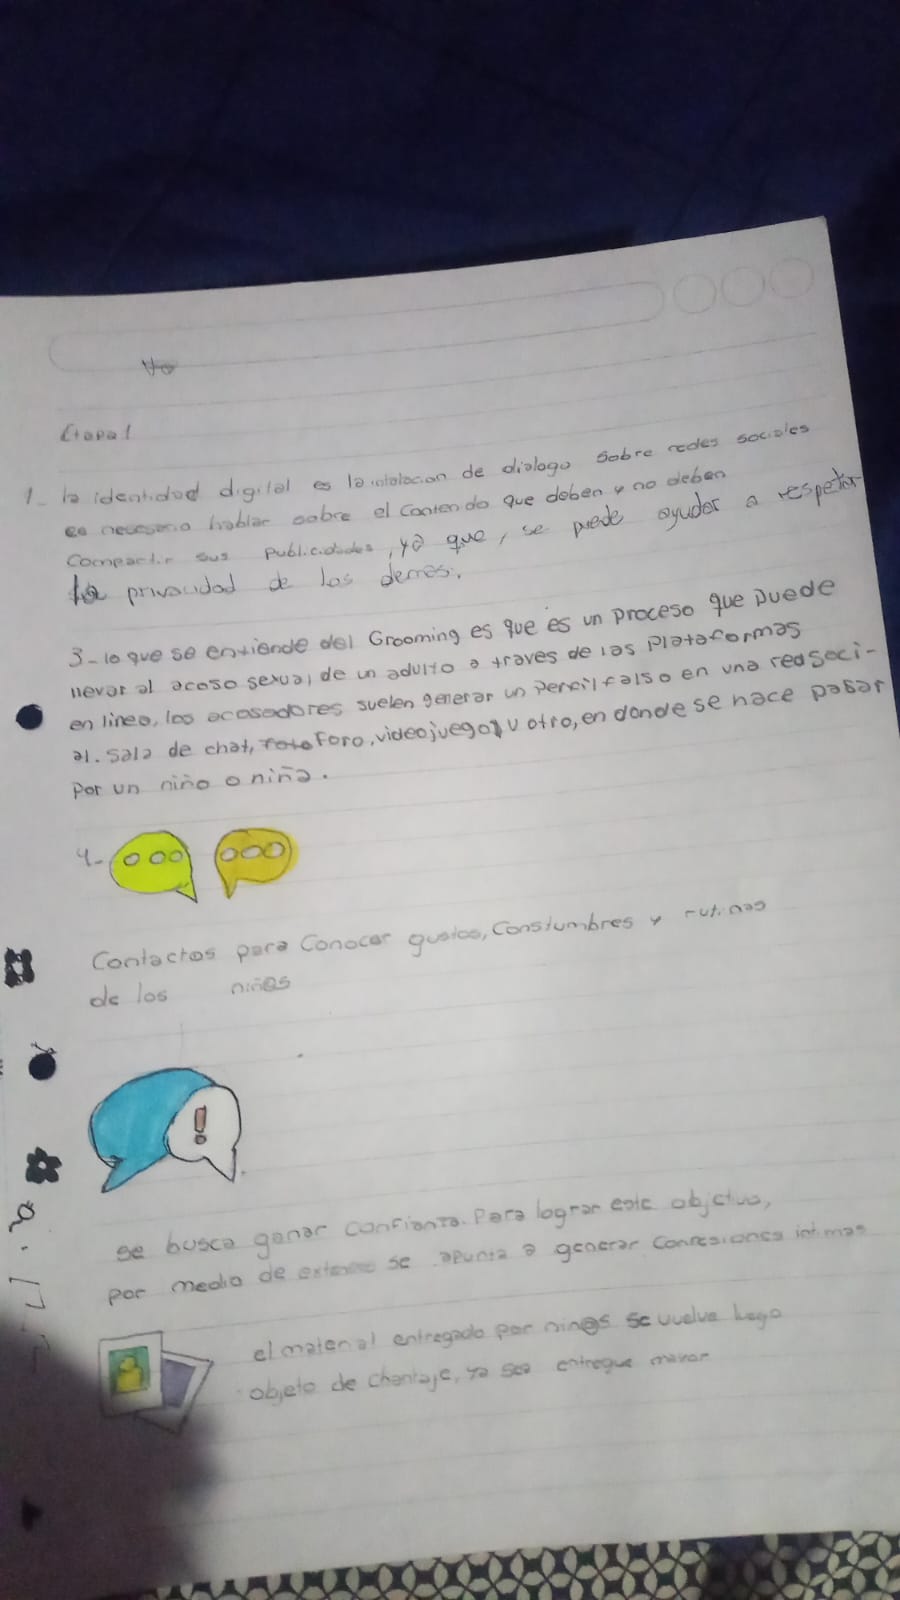 Etapa 1
1- la identidad digital es la de dialogo sobre redes sociales
es necesario hablar sobre el Contenido que deben y no deben
Compartir sus publicidades, ya que, se puede ayudar a respetar
la privacidad de los demas.
3- lo que se entiende del Grooming es que es un proceso que puede
llevar al acoso sexual de un adulto a traves de las Plataformas
en linea, los acosadores suelen generar un Perfil falso en una red soci-
al. sala de chat, foro, videojuego, u otro, en donde se hace pasar
Por un niño o niña.
4-
Contactos para Conocer gustos, Constumbres y rutinas
de los niñ@s
!
se busca ganar confianza. Para lograr este objetivo,
por medio de se apunta a generar Confesiones intimas
el material entregado por niñ@s se vuelve luego
objeto de chantaje, ya sea entregue